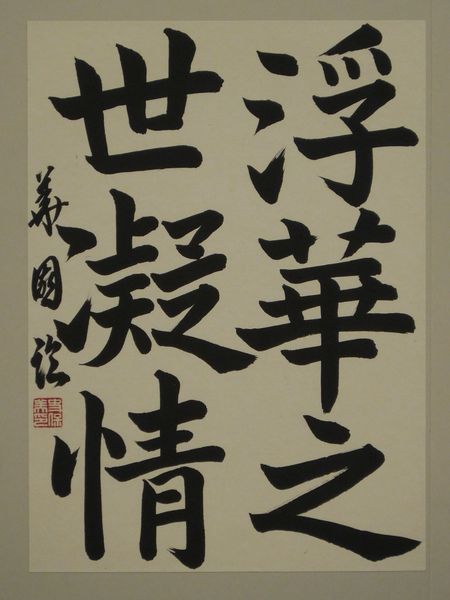 浮華之
世凝情